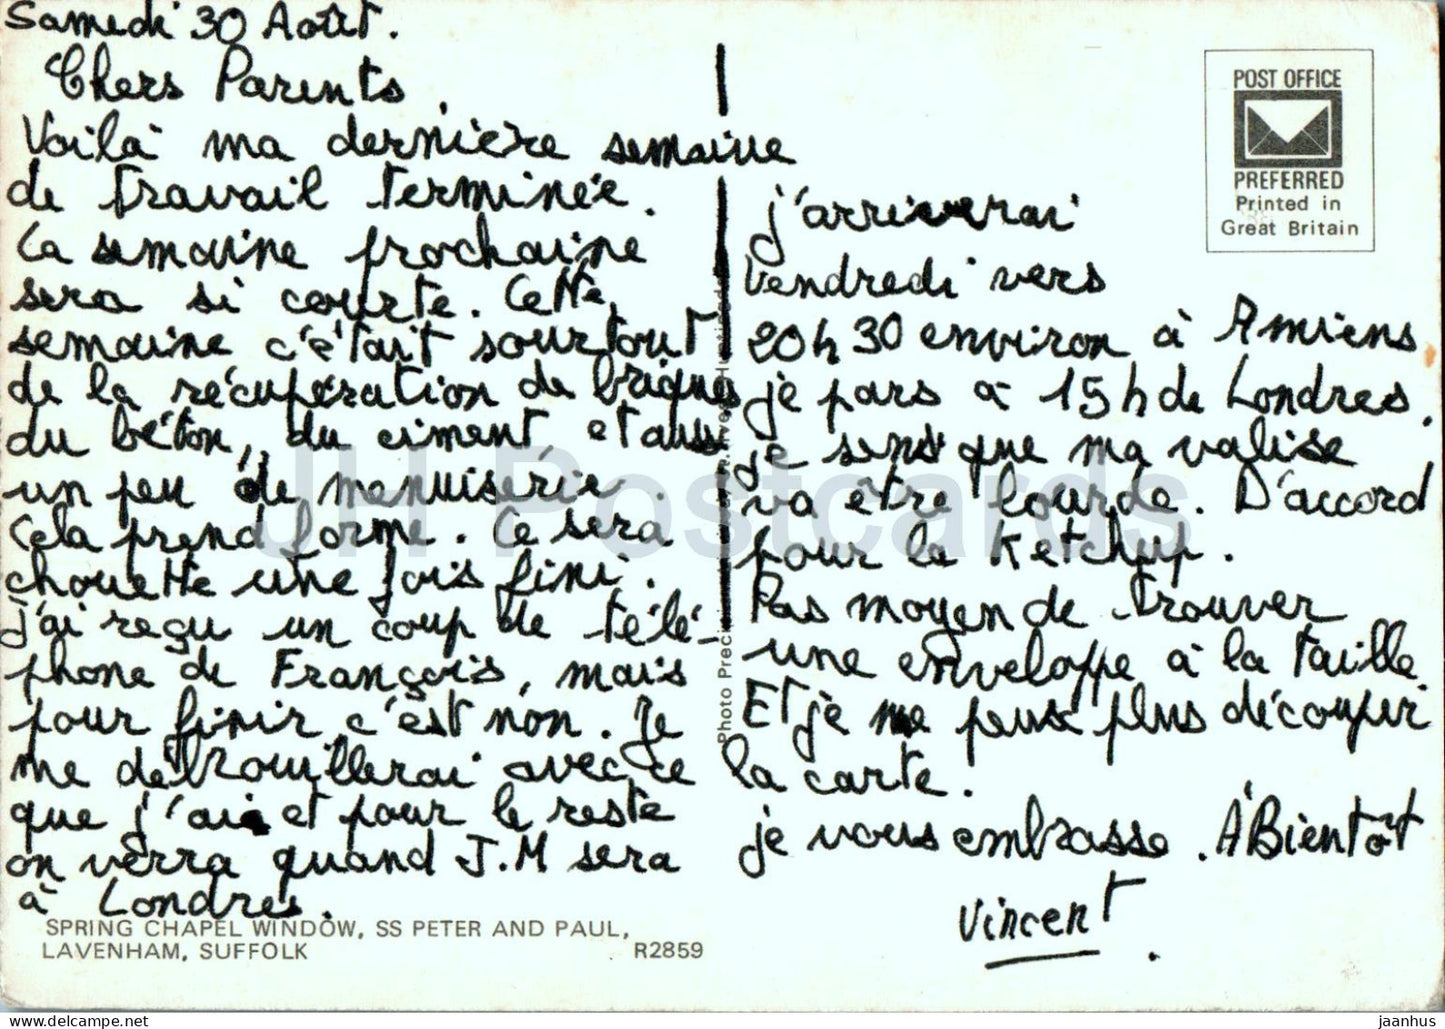 Samedi 30 Août.
Chers Parents,
Voilà ma dernière semaine
de travail terminée.
La semaine prochaine
sera si courte. Cette
semaine c'était sourtout
de la récupération de briques
du béton, du ciment et aussi
un peu de menuisérie.
Cela prend forme. Ce sera
chouette une fois fini.
J'ai reçu un coup de télé-
phone de François, mais
pour finir c'est non. Je
me débrouillerai avec ce
que j'ai et pour le reste
on verra quand J.M sera
à Londres.
SPRING CHAPEL WINDOW, SS PETER AND PAUL,
LAVENHAM, SUFFOLK R2859
Photo Preci
POST OFFICE
PREFERRED
Printed in
Great Britain
j'arriverai
Vendredi vers
20h30 environ à Amiens
je pars à 15h de Londres
je sens que ma valise
va être lourde. D'accord
pour le Ketchup.
Pas moyen de trouver
une enveloppe à la taille.
Et je ne peux plus découper
la carte.
je vous embrasse. A Bientôt
Vincent.
JH Postcards
delcampe.net
jaanhus